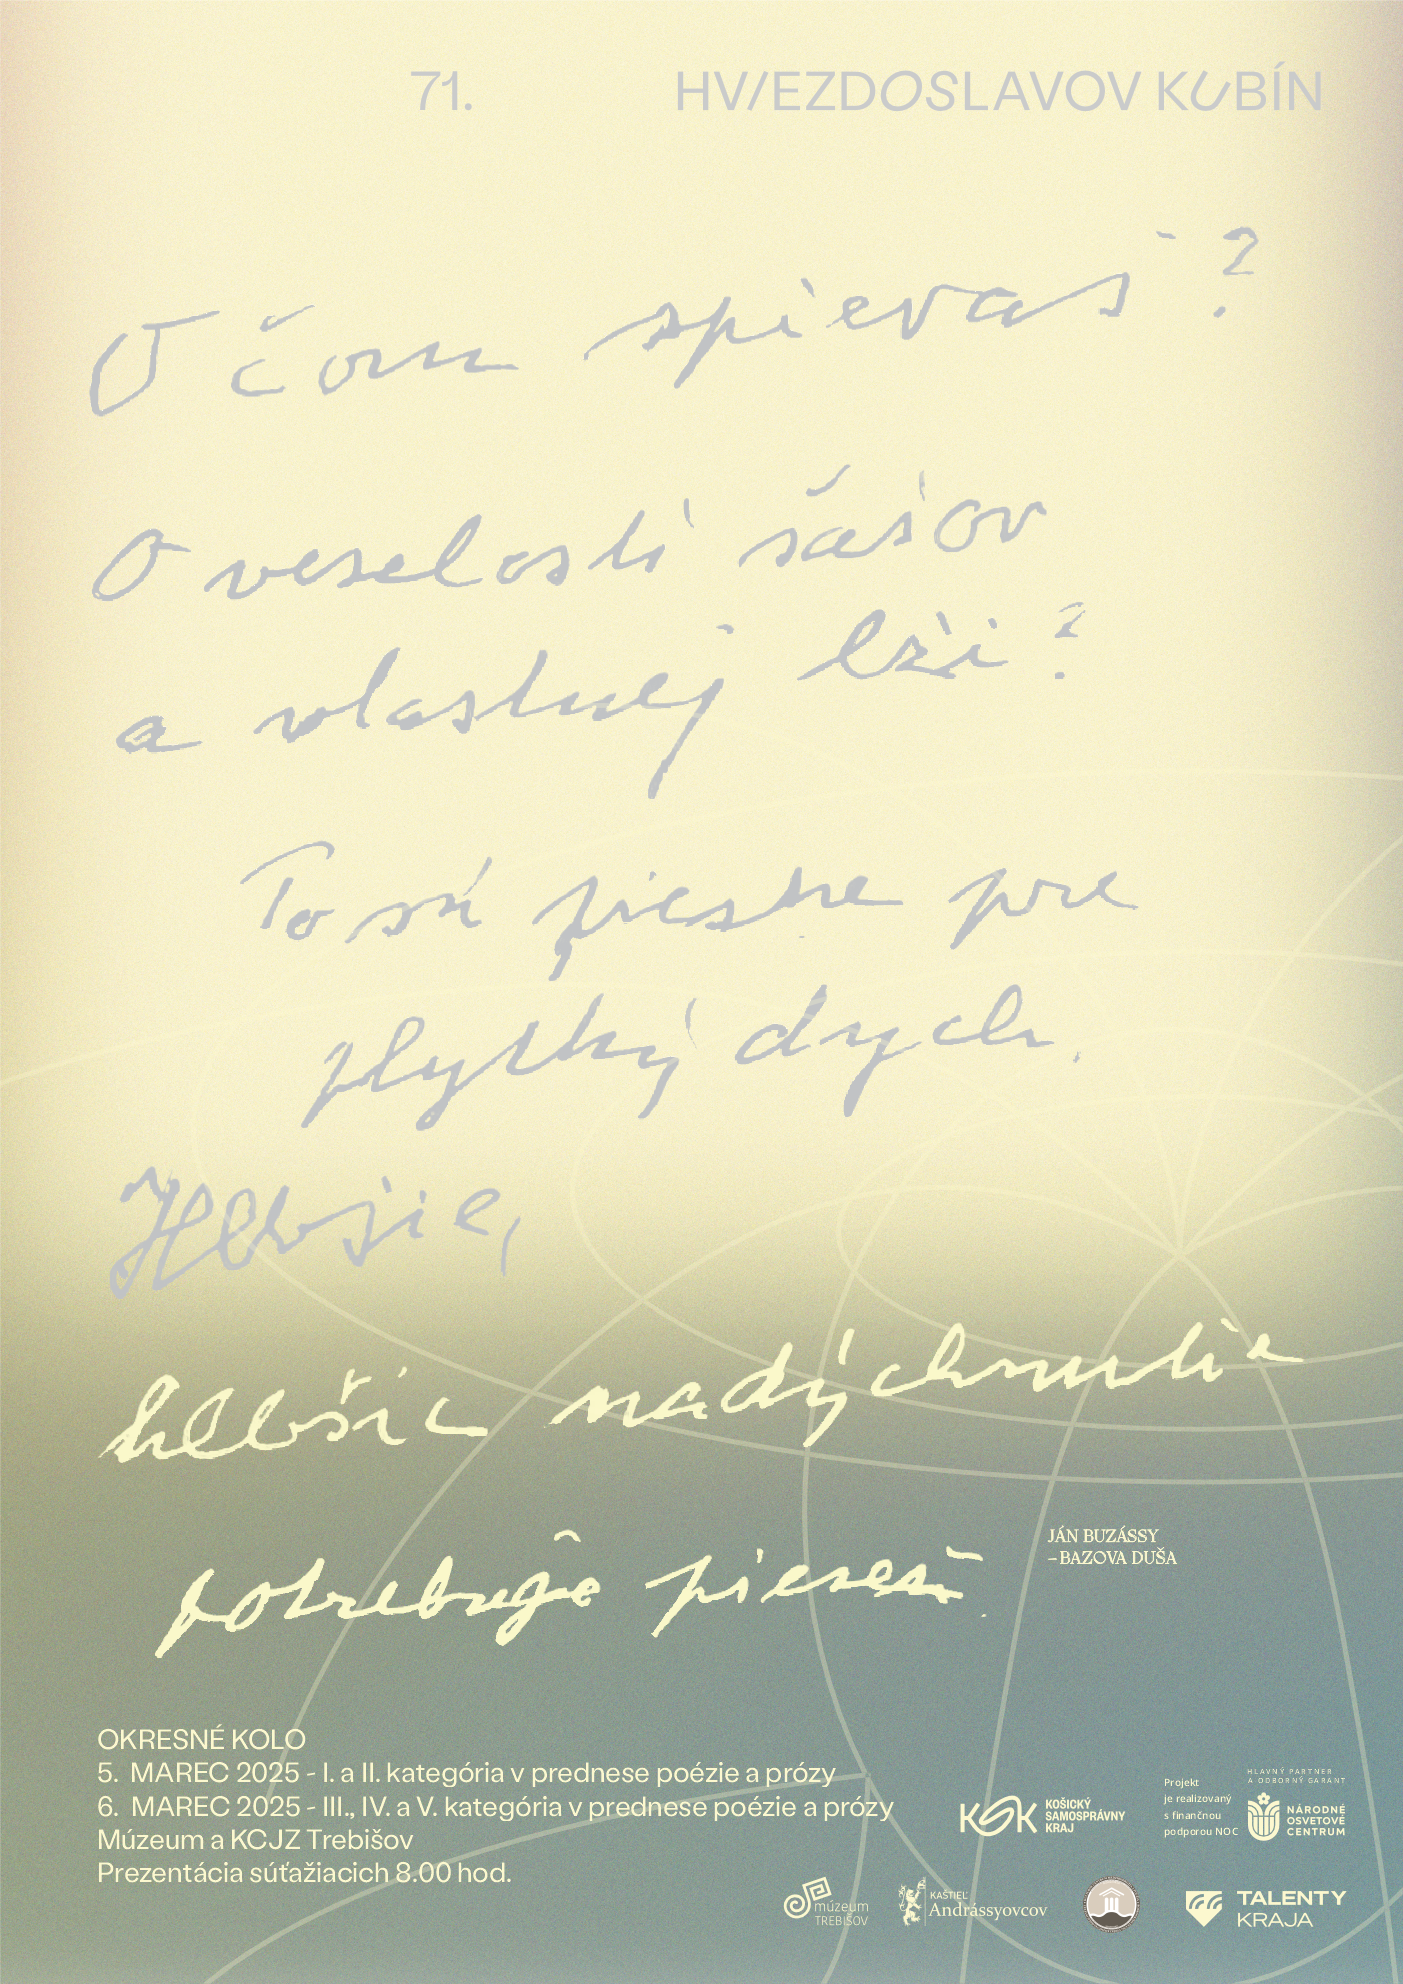 71. HVIEZDOSLAVOV KUBÍN
O čom spievaš?
O veselosti šašov
a vlastnej lži?
To sú piesne pre
plytký dych.
Hlbšie,
hlbšie nadýchnutie
potrebuje pieseň.
JÁN BUZÁSSY
– BAZOVA DUŠA
OKRESNÉ KOLO
5. MAREC 2025 - I. a II. kategória v prednese poézie a prózy
6. MAREC 2025 - III., IV. a V. kategória v prednese poézie a prózy
Múzeum a KCJZ Trebišov
Prezentácia súťažiacich 8.00 hod.
KSK KOŠICKÝ
SAMOSPRÁVNY
KRAJ
Projekt
je realizovaný
s finančnou
podporou NOC
HLAVNÝ PARTNER
A ODBORNÝ GARANT
NÁRODNÉ
OSVETOVÉ
CENTRUM
múzeum
TREBIŠOV
KAŠTIEĽ
Andrássyovcov
TALENTY
KRAJA